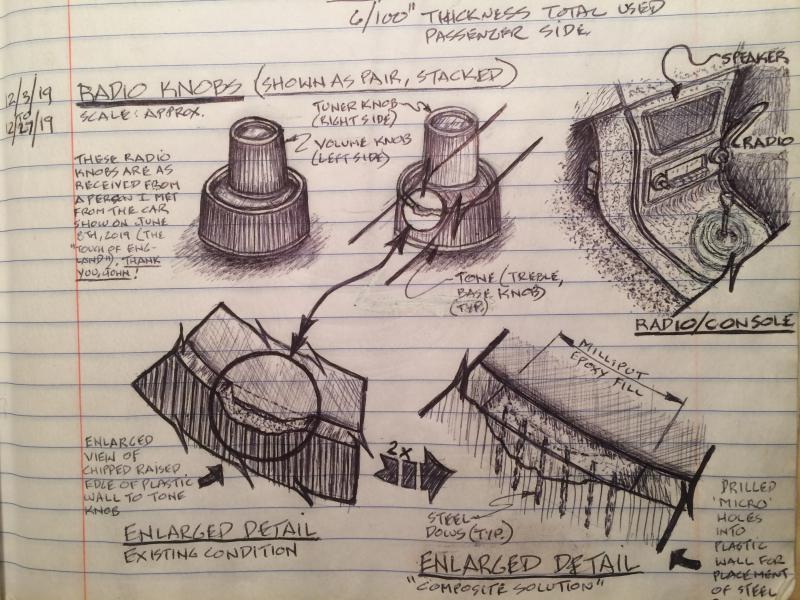 6/100" THICKNESS TOTAL USED
PASSENZER SIDE
12/3/19
TO
12/27/19
RADIO KNOBS (SHOWN AS PAIR, STACKED)
SCALE: APPROX.
TUNER KNOB
(RIGHT SIDE)
VOLUME KNOB
(LEFT SIDE)
SPEAKER
RADIO
THESE RADIO
KNOBS ARE AS
RECEIVED FROM
A PERSON I MET
FROM THE CAR
SHOW ON JUNE
8TH, 2019 (THE
"TOUCH OF ENG-
LAND"). THANK
YOU, JOHN!
TONE (TREBLE,
BASE KNOB)
(TYP.)
RADIO/CONSOLE
MILLIPUT
EPOXY FILL
ENLARGED
VIEW OF
CHIPPED RAISED
EDGE OF PLASTIC
WALL TO TONE
KNOB
2X
STEEL
DOWS (TYP.)
DRILLED
'MICRO'
HOLES
INTO
PLASTIC
WALL FOR
PLACEMENT
OF STEEL
ENLARGED DETAIL
EXISTING CONDITION
ENLARGED DETAIL
"COMPOSITE SOLUTION"